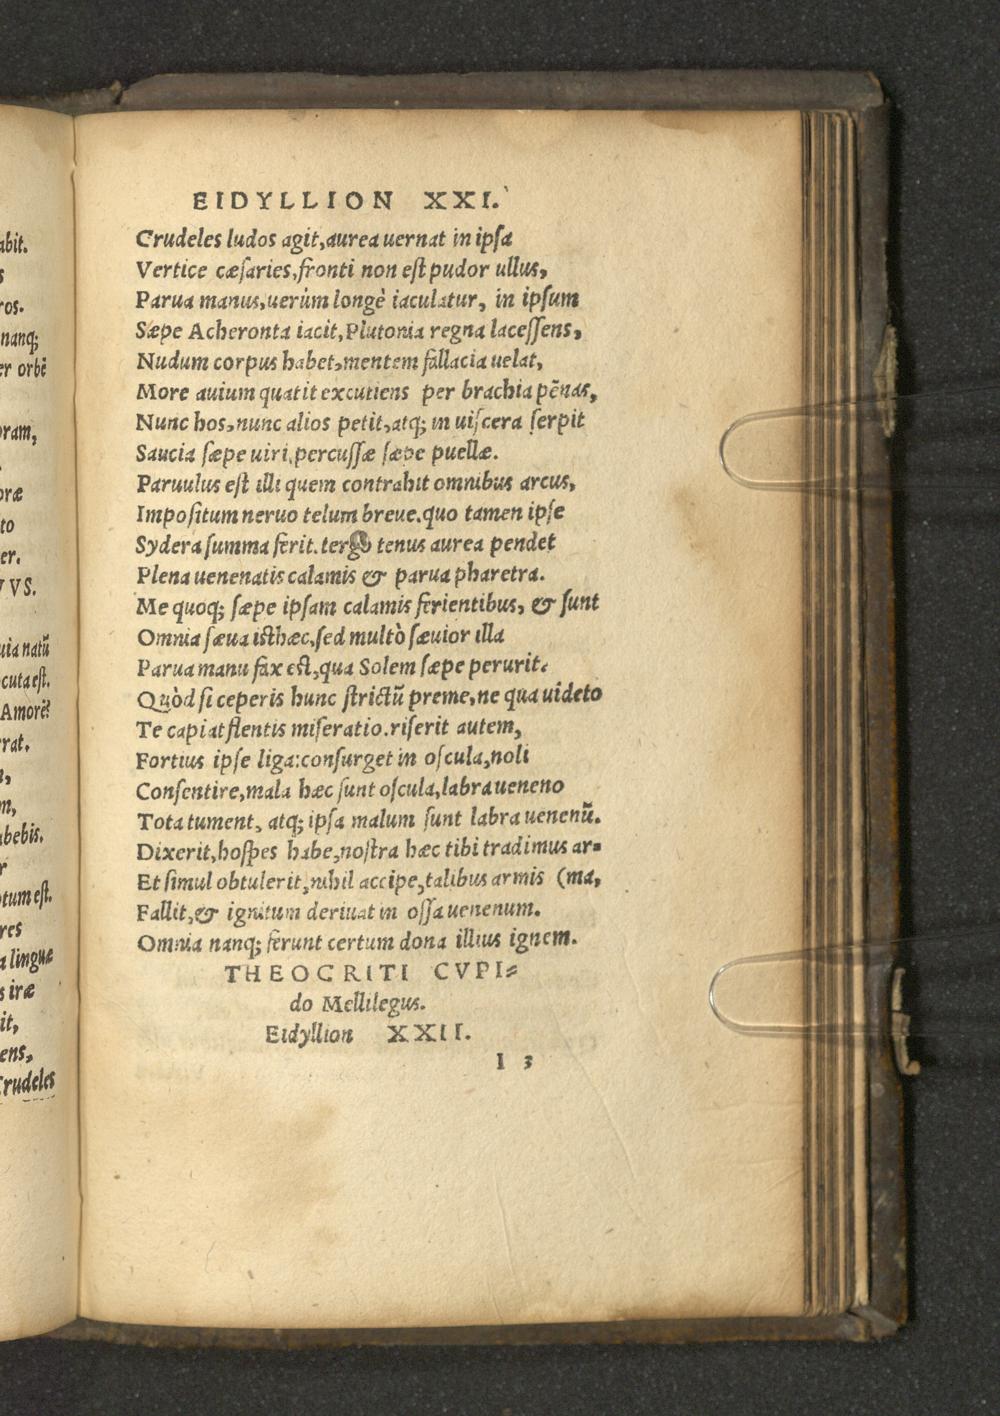 abit.
s
ros.
nanq;
er orbē
oram,
oræ
to
er.
VVS.
uia natū
cuta est.
Amorē?
rat.
m,
abebis.
r
ptum est.
res
a linguæ
s iræ
it,
ens,
Crudeles
EIDYLLION XXI.
Crudeles ludos agit, aurea uernat in ipsa
Vertice cæsaries, fronti non est pudor ullus,
Parua manus, uerùm longè iaculatur, in ipsum
Sæpe Acheronta iacit, Plutonia regna lacessens,
Nudum corpus habet, mentem fallacia uelat,
More auium quatit excutiens per brachia pēnas,
Nunc hos, nunc alios petit, atq; in uiscera serpit
Saucia sæpe uiri, percussæ sæpe puellæ.
Paruulus est illi quem contrahit omnibus arcus,
Impositum neruo telum breue. quo tamen ipse
Sydera summa ferit. tergo tenus aurea pendet
Plena uenenatis calamis & parua pharetra.
Me quoq; sæpe ipsam calamis ferientibus, & sunt
Omnia sæua isthæc, sed multò sæuior illa
Parua manu fax est, qua Solem sæpe perurit.
Quòd si ceperis hunc strictū preme, ne qua uideto
Te capiat flentis miseratio. riserit autem,
Fortius ipse liga: consurget in oscula, noli
Consentire, mala hæc sunt oscula, labra ueneno
Tota tument, atq; ipsa malum sunt labra uenenū.
Dixerit, hospes habe, nostra hæc tibi tradimus ar=
Et simul obtulerit, nihil accipe, talibus armis (ma,
Fallit, & ignitum deriuat in ossa uenenum.
Omnia nanq; ferunt certum dona illius ignem.
THEOCRITI CVPI=
do Mellilegus.
Eidyllion XXII.
I 3